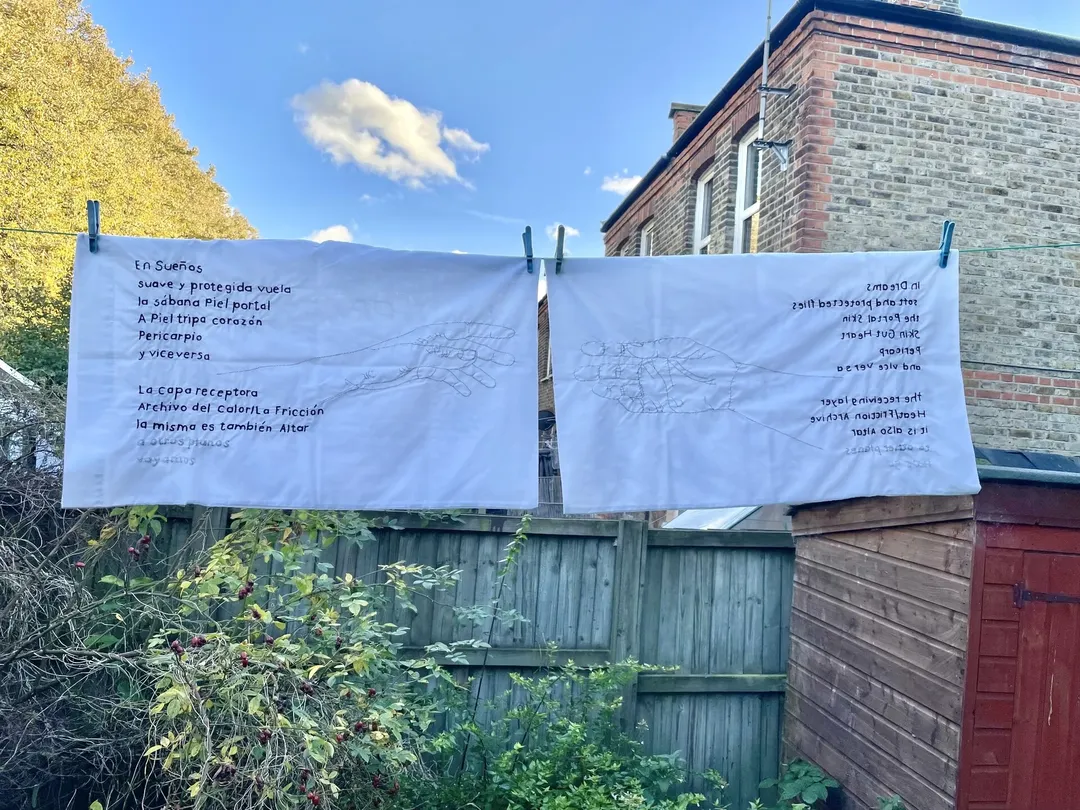 En Sueños
suave y protegida vuela
la sábana Piel portal
A Piel tripa corazón
Pericarpio
y viceversa
La capa receptora
Archivo del Calor/La Fricción
la misma es también Altar
a otros planos
vayamos
In Dreams
soft and protected flies
the Portal Skin
Skin Gut Heart
Pericarp
and vice versa
the receiving layer
Heat/Friction Archive
it is also Altar
to other planes